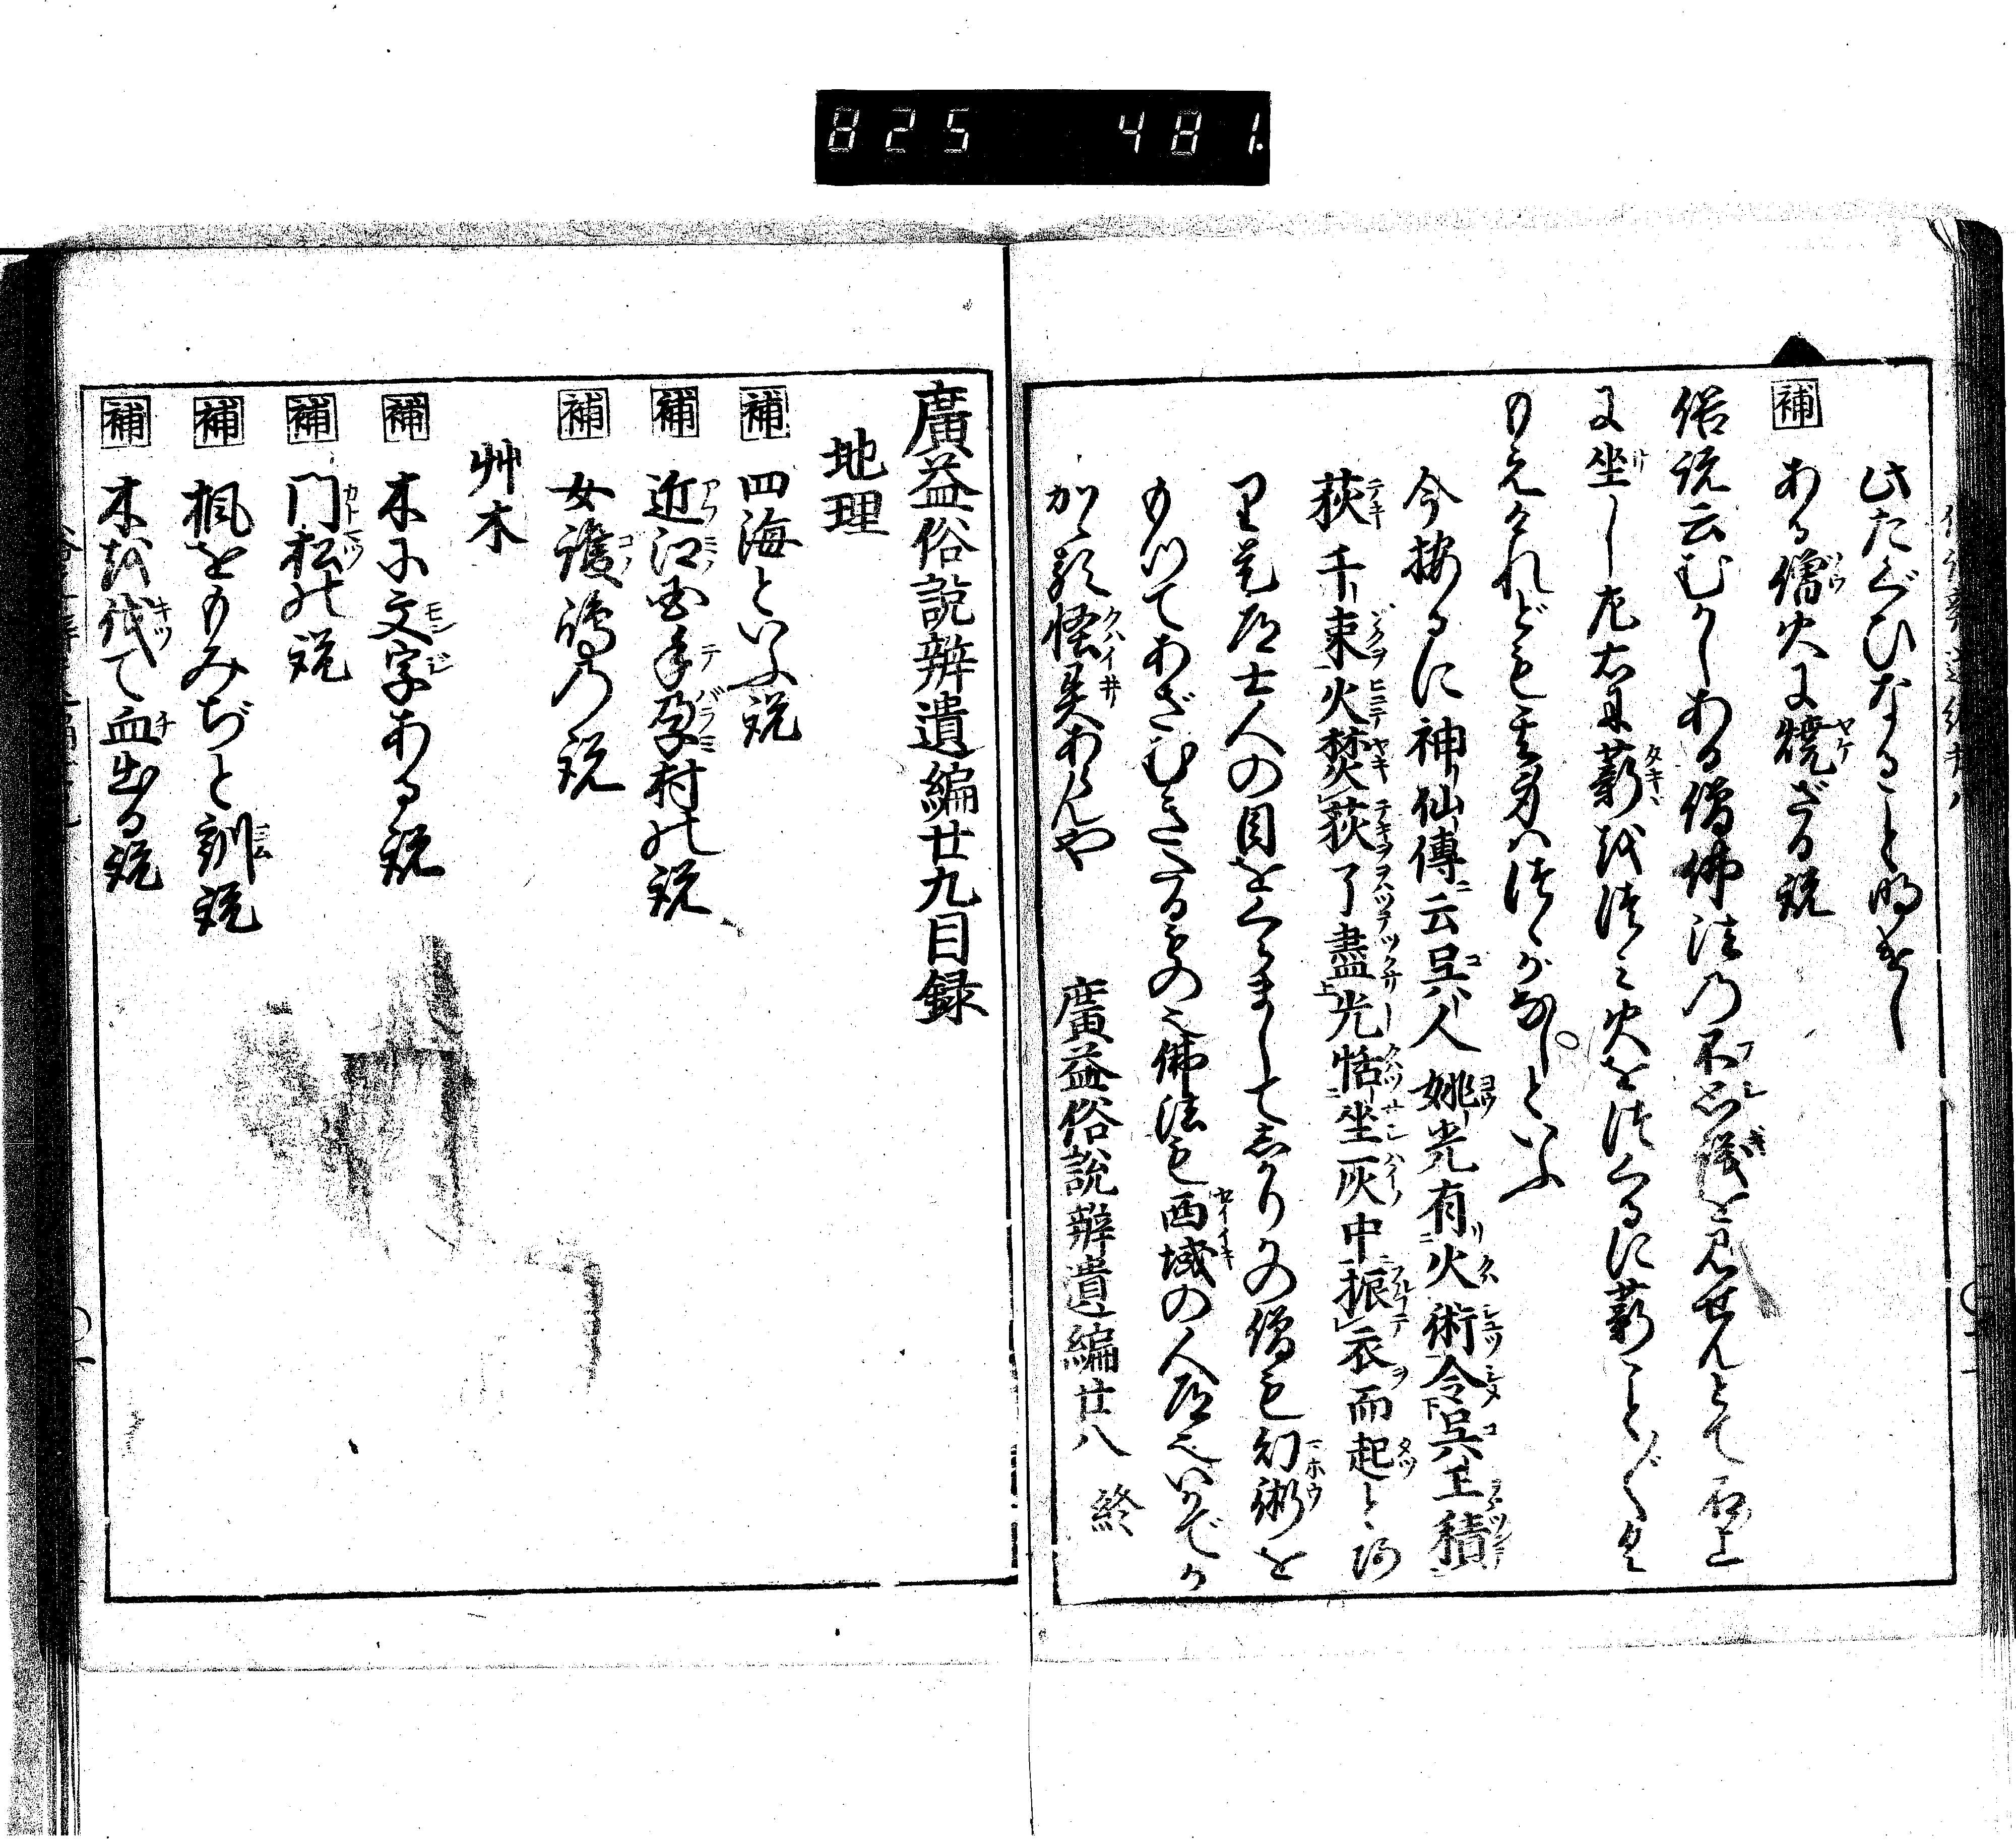 825 481.
此たぐひなること明けし
補 ある僧火に燒ざる説
俗説云むかしある僧佛法の不思議を見せんとて石上
に坐し左右に薪をつみ火をつくるに薪ことごとく
もえけれども其身はつゝがなしといふ
今按るに神仙傳云呉人姚光有火術令呉王積
荻千束火焚荻了盡光恬坐灰中振衣而起とあ
り是道士人の目をくらましてしかりかの僧も幻術を
もつてあざむきたるもの也佛法も西域の人道也いかでか
かゝる怪異あらんや
廣益俗説辨遺編廿八 終
廣益俗説辨遺編廿九目録
地理
補 四海といふ説
補 近江国手孕村の説
補 女護嶋の説
艸木
補 木に文字ある説
補 門松の説
補 楓をもみぢと訓説
補 木を伐て血出る説